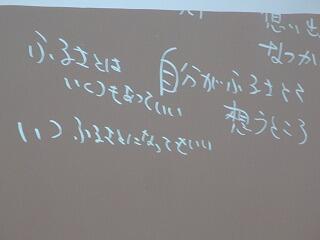 なつか
ふるさとは
いくつもあっていい
いつ ふるさとになってもいい
自分がふるさとと
想うところ